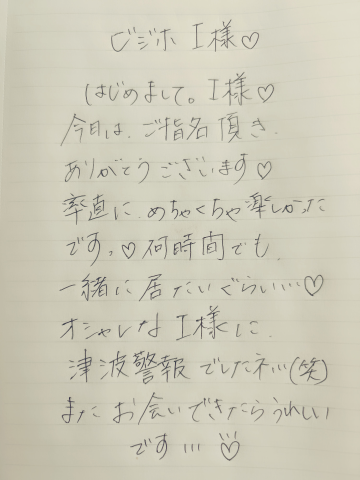 ビジホ I様♡
はじめまして。I様♡
今日は、ご指名頂き、
ありがとうございます♡
率直に、めちゃくちゃ楽しかった
ですっ♡何時間でも、
一緒に居たいぐらい…♡
オシャレなI様に、
津波警報でしたネ…(笑)
またお会いできたらうれしい
です…♡